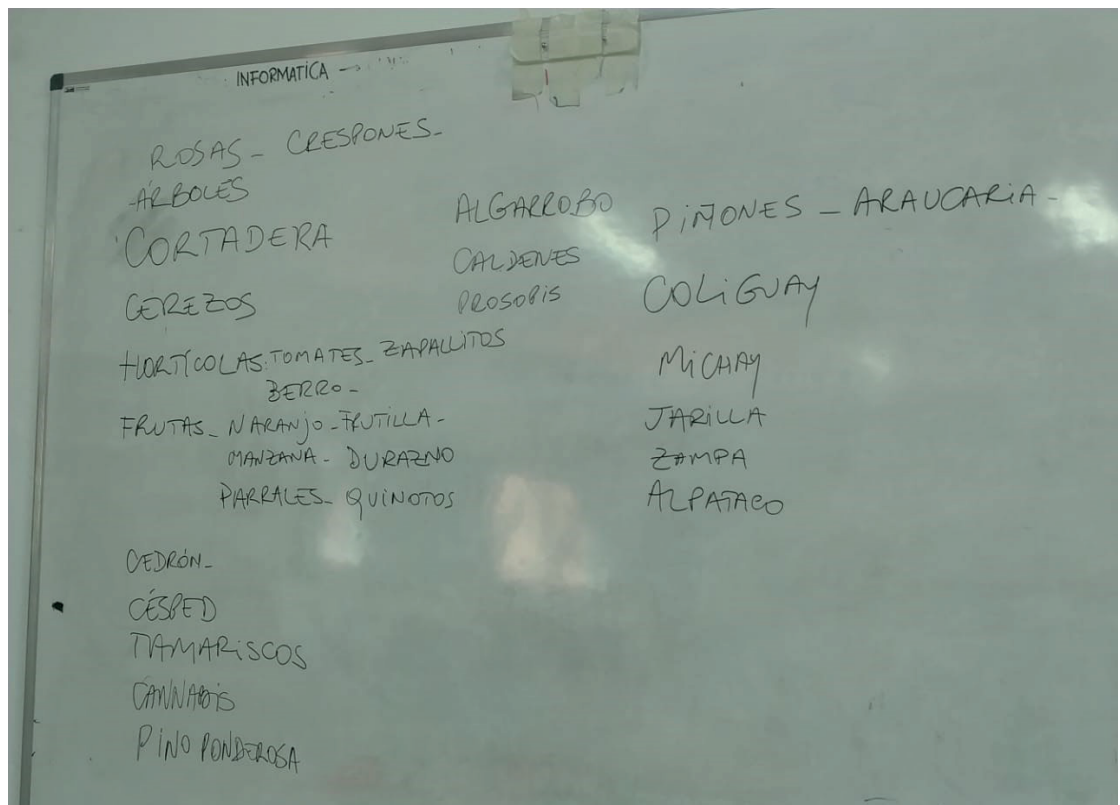 INFORMATICA →
ROSAS - CRESPONES -
- ÁRBOLES
CORTADERA
CEREZOS
HORTÍCOLAS: TOMATES - ZAPALLITOS
BERRO -
FRUTAS - NARANJO - FRUTILLA -
MANZANA - DURAZNO
PARRALES - QUINOTOS
CEDRÓN -
CÉSPED
TAMARISCOS
CANNABIS
PINO PONDEROSA
ALGARROBO
CALDENES
PROSOPIS
PIÑONES - ARAUCARIA -
COLIGUAY
MICHAY
JARILLA
ZAMPA
ALPATACO